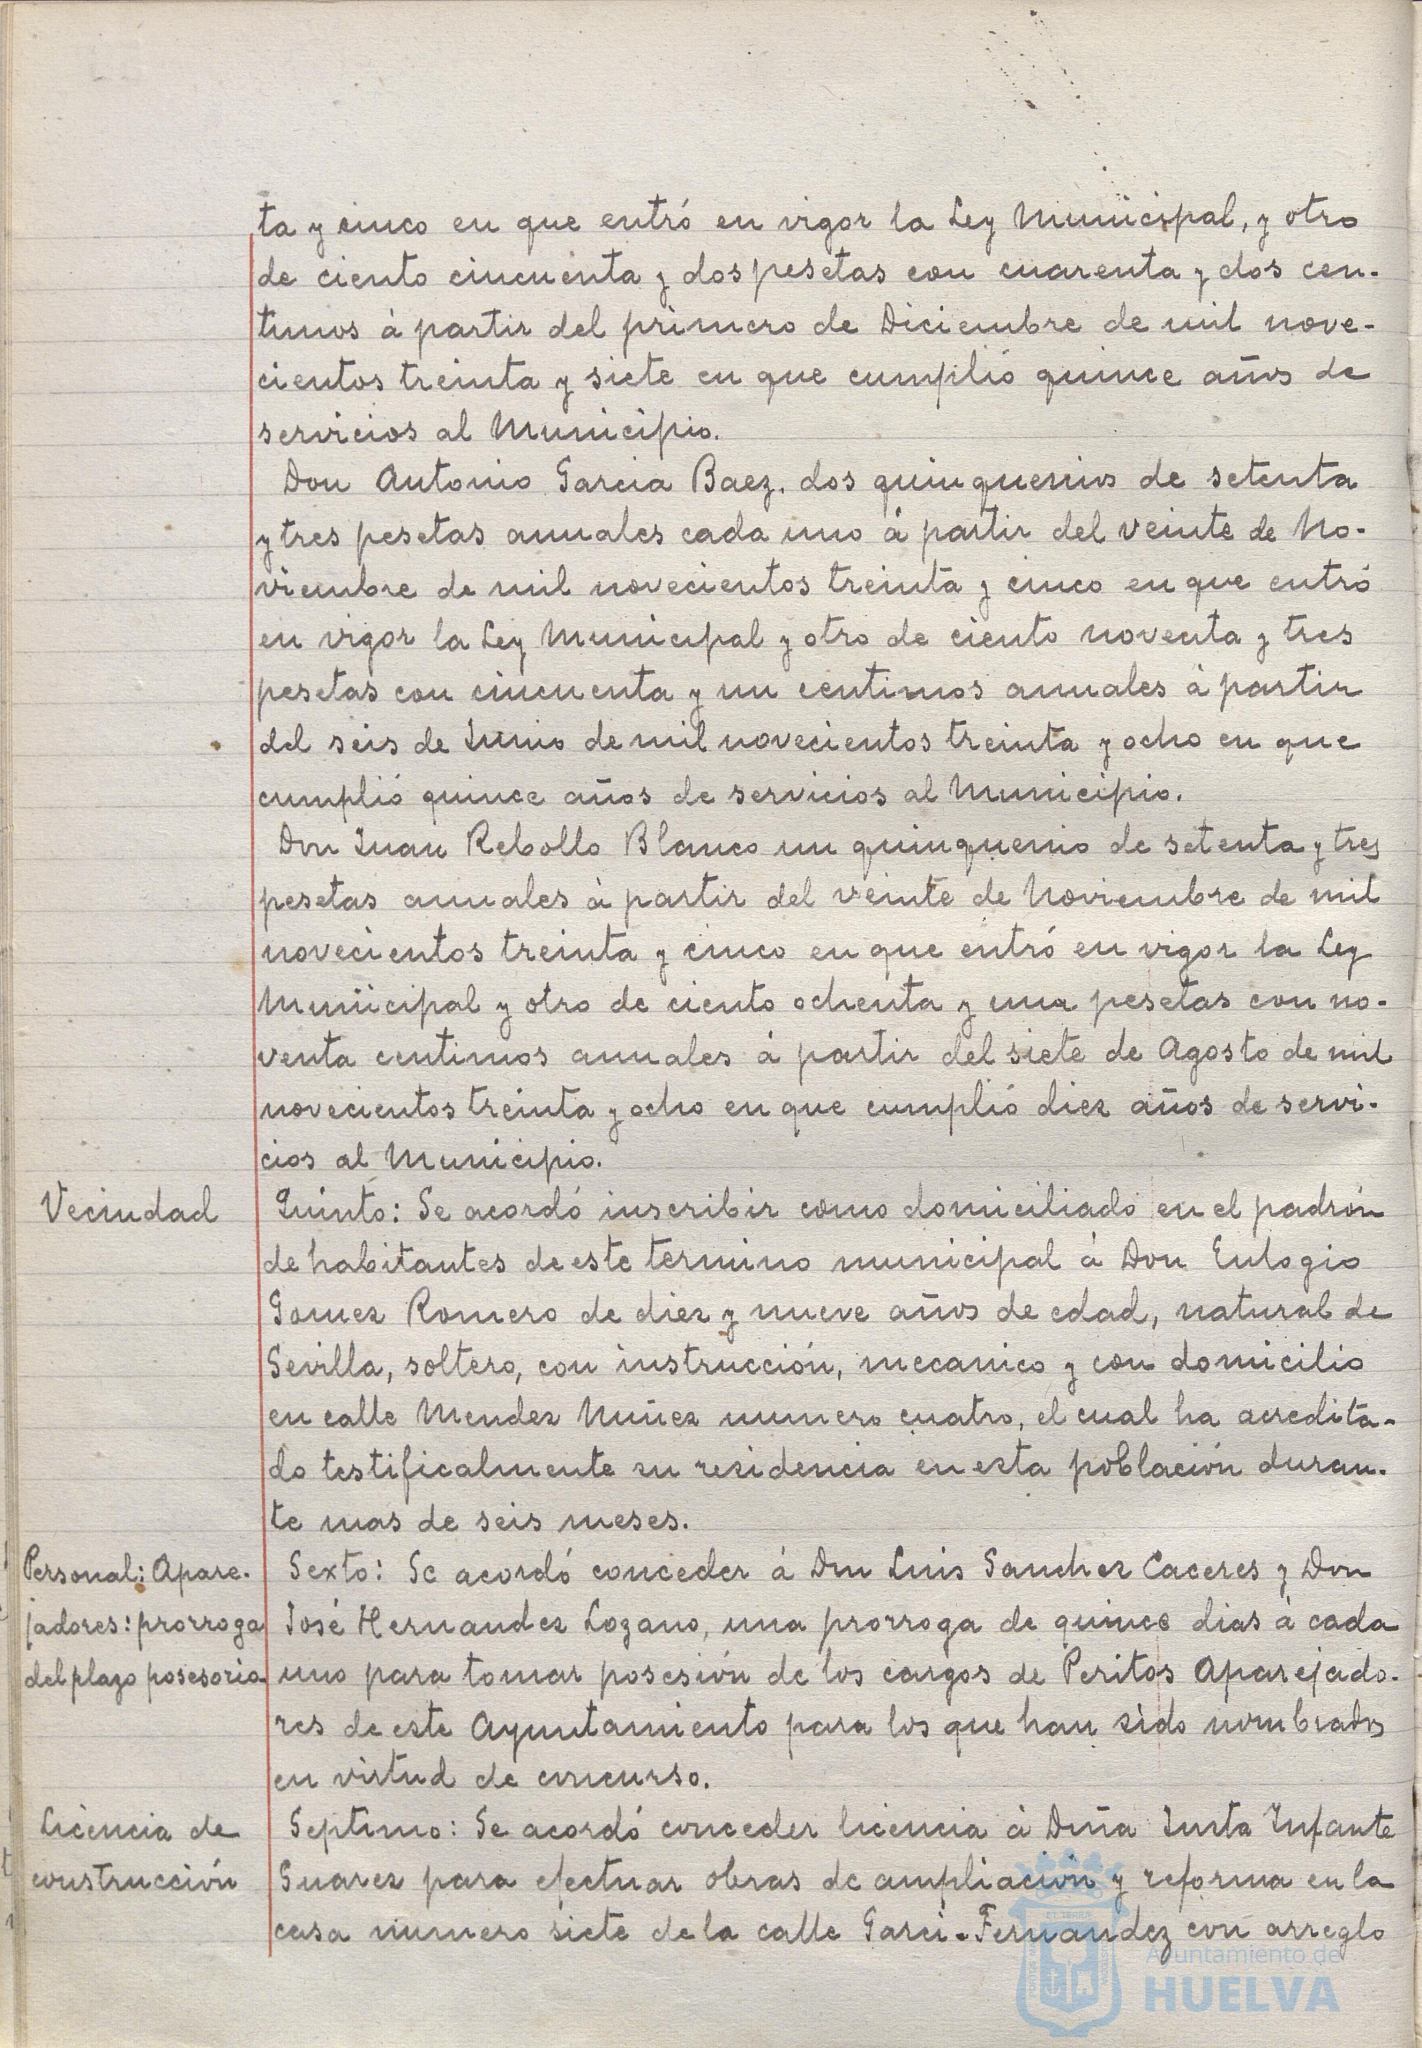 ta y cinco en que entró en vigor la Ley Municipal, y otro
de ciento cincuenta y dos pesetas con cuarenta y dos cen-
timos á partir del primero de Diciembre de mil nove-
cientos treinta y siete en que cumplió quince años de
servicios al Municipio.
Don Antonio Garcia Baez, dos quinquenios de setenta
y tres pesetas anuales cada uno á partir del veinte de No-
viembre de mil novecientos treinta y cinco en que entró
en vigor la Ley Municipal y otro de ciento noventa y tres
pesetas con cincuenta y un centimos anuales á partir
del seis de Junio de mil novecientos treinta y ocho en que
cumplió quince años de servicios al Municipio.
Don Juan Rebollo Blanco un quinquenio de setenta y tres
pesetas anuales á partir del veinte de Noviembre de mil
novecientos treinta y cinco en que entró en vigor la Ley
Municipal y otro de ciento ochenta y una pesetas con no-
venta centimos anuales á partir del siete de Agosto de mil
novecientos treinta y ocho en que cumplió diez años de servi-
cios al Municipio.
Vecindad
Quinto: Se acordó inscribir como domiciliado en el padrón
de habitantes de este termino municipal á Don Eulogio
Gomez Romero de diez y nueve años de edad, natural de
Sevilla, soltero, con instrucción, mecanico y con domicilio
en calle Mendez Nuñez numero cuatro, el cual ha acredita-
do testificalmente su residencia en esta población duran-
te mas de seis meses.
Personal: Apare-
jadores: prorroga
del plazo posesorio.
Sexto: Se acordó conceder á Don Luis Sanchez Caceres y Don
José Hernandez Lozano, una prorroga de quince dias á cada
uno para tomar posesión de los cargos de Peritos Aparejado-
res de este Ayuntamiento para los que han sido nombrados
en virtud de concurso.
Licencia de
construcción
Septimo: Se acordó conceder licencia á Doña Justa Infante
Suarez para efectuar obras de ampliación y reforma en la
casa numero siete de la calle Garci-Fernandez con arreglo
Ayuntamiento de
HUELVA